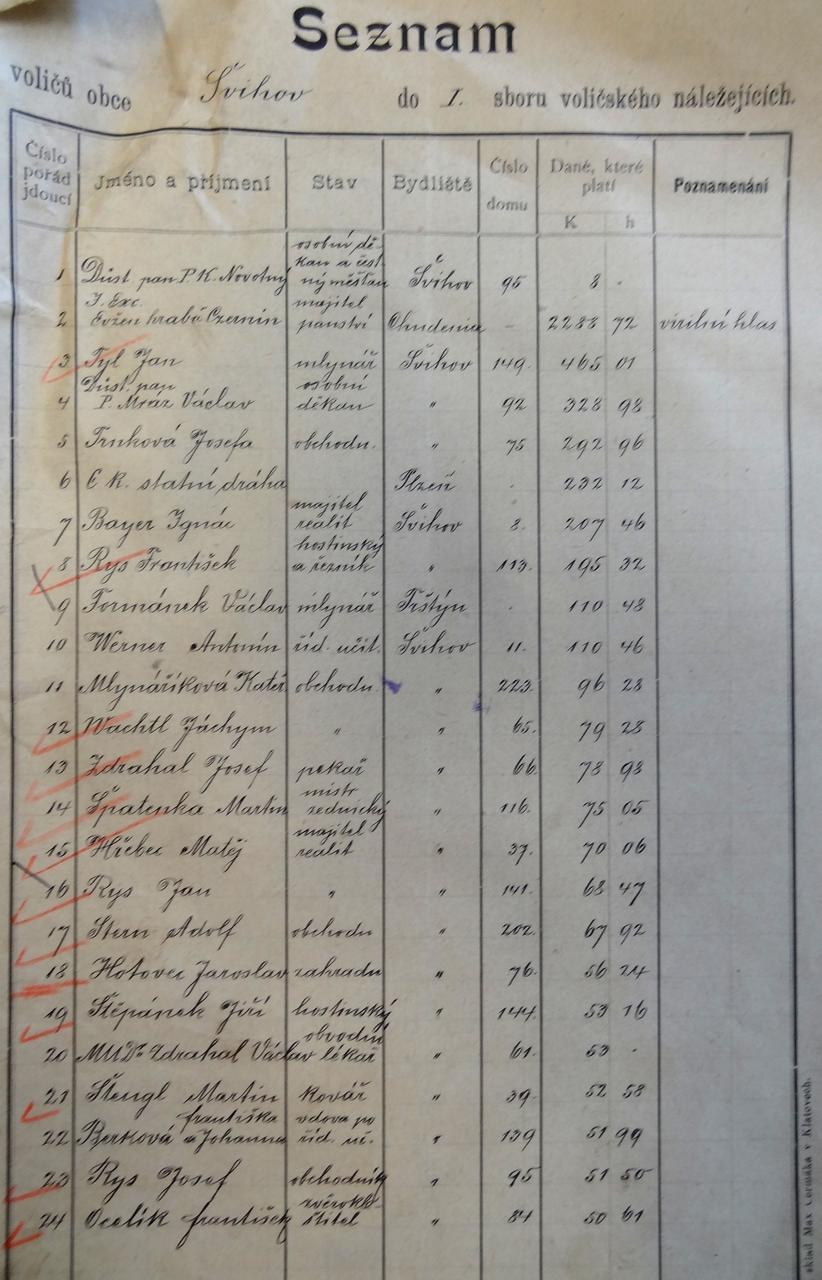 Seznam
voličů obce Švihov do I. sboru voličského náležejících.
Číslo pořád jdoucí Jméno a příjmení Stav Bydliště Číslo domu Daně, které platí K h Poznamenání
osobní dě-
kan a čest
1 Důst pan P. K. Novotný ný měšťan Švihov 95 8 -
J. Exc. majitel
2 Evžen hrabě Czernin panství Chudenice - 2288 72 virilní hlas
3 Tyl Jan mlynář Švihov 149. 465 01
Důst. pan osobní
4 P. Mráz Václav děkan " 92 328 98
5 Trnková Josefa obchodn. " 75 292 96
6 C. k. statní dráha Plzeň . 232 12
majitel
7 Bayer Ignác realit Švihov 8. 207 46
hostinský
8 Rys František a řezník " 113. 195 32
9 Formánek Václav mlynář Trštýn . 110 48
10 Werner Antonín říd. učit. Švihov 11. 110 46
11 Mlynáříková Kateř. obchodn. " 223. 96 28
12 Wachtl Jáchym " " 65. 79 28
13 Zdrahal Josef pekař " 66. 78 98
mistr
14 Špatenka Martin zednický " 116. 75 05
majitel
15 Hřebec Matěj realit " 37. 70 06
16 Rys Jan " " 141. 68 47
17 Stern Adolf obchodn " 202. 67 92
18 Hotovec Jaroslav zahradn " 76. 56 24
19 Štěpánek Jiří hostinský " 144. 53 16
obvodní
20 MUDr Zdrahal Václav lékař " 61. 53 -
21 Štengl Martin kovář " 39. 52 58
Františka vdova po
22 Berková a Johanna říd. uč. " 139 51 99
23 Rys Josef obchodník " 95 51 50
zvěrokle-
24 Ocelík František štitel " 84 50 61
sklad Max Čermáka v Klatovech.